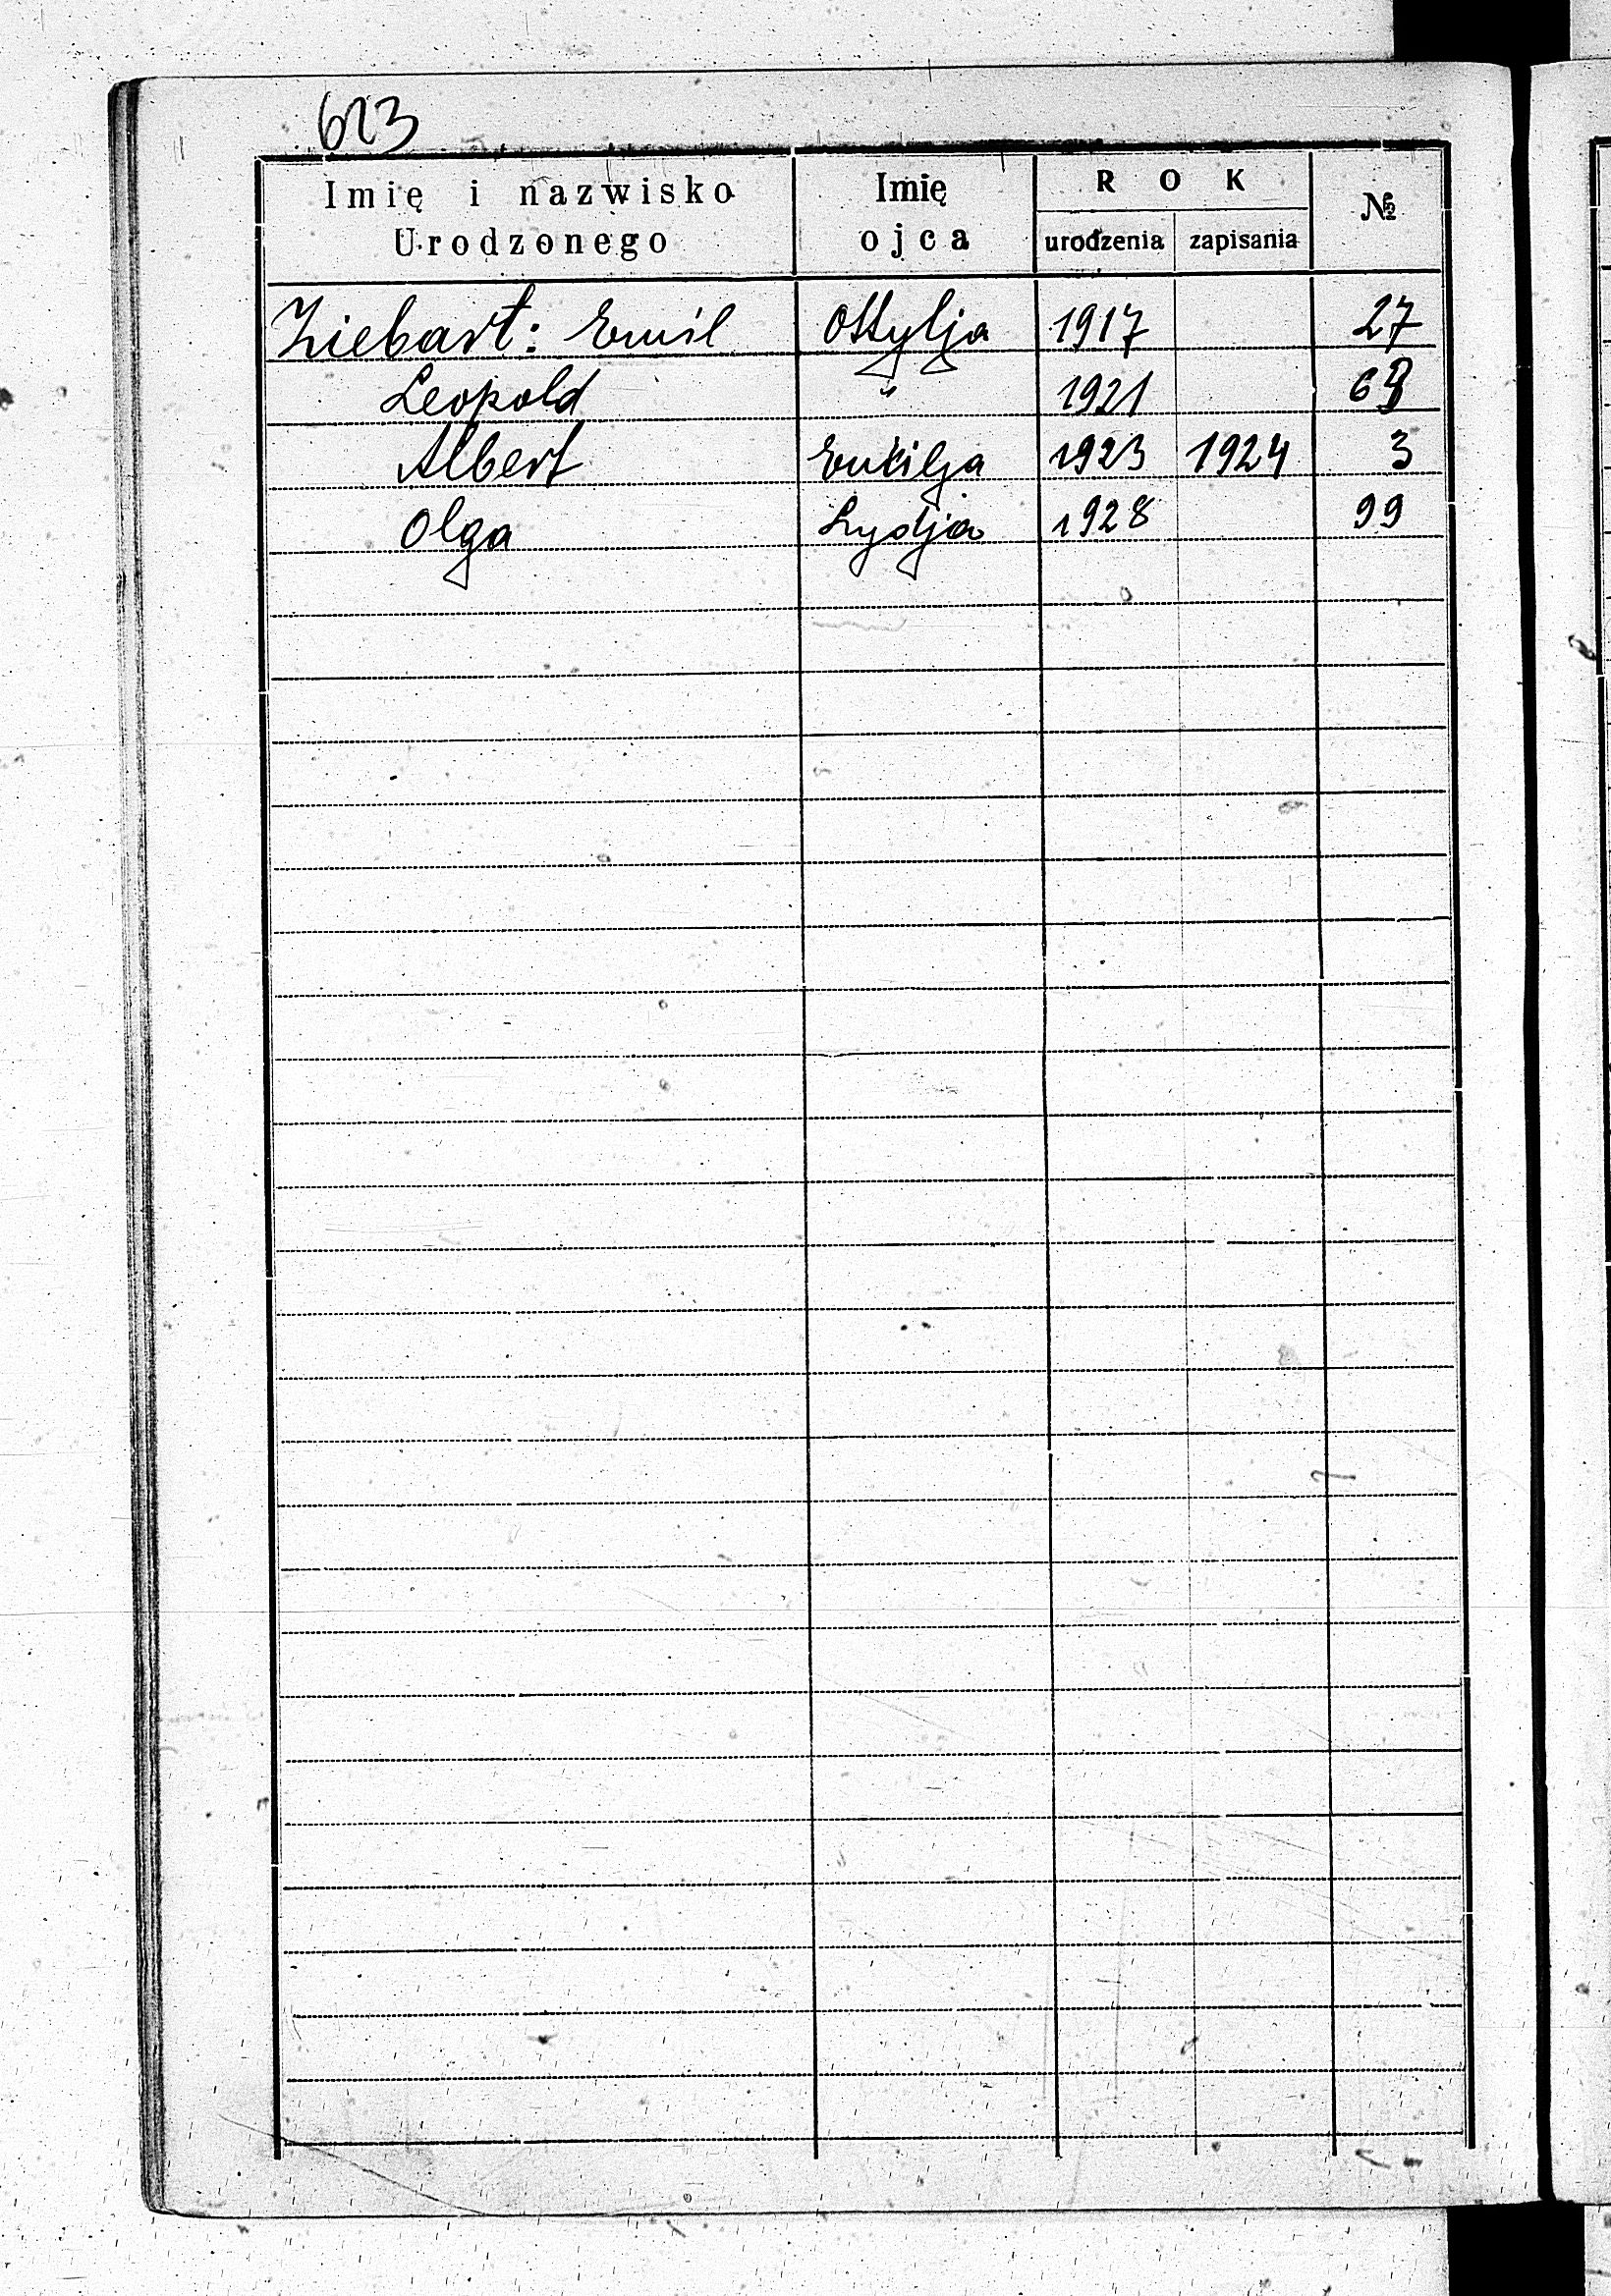 623
Imię i nazwisko Urodzonego Imię ojca ROK urodzenia zapisania №
Ziebart: Emil Ottylja 1917 27
Leopold " 1921
Albert Emilja 1923 1924 3
Olga Lydja 1928 99